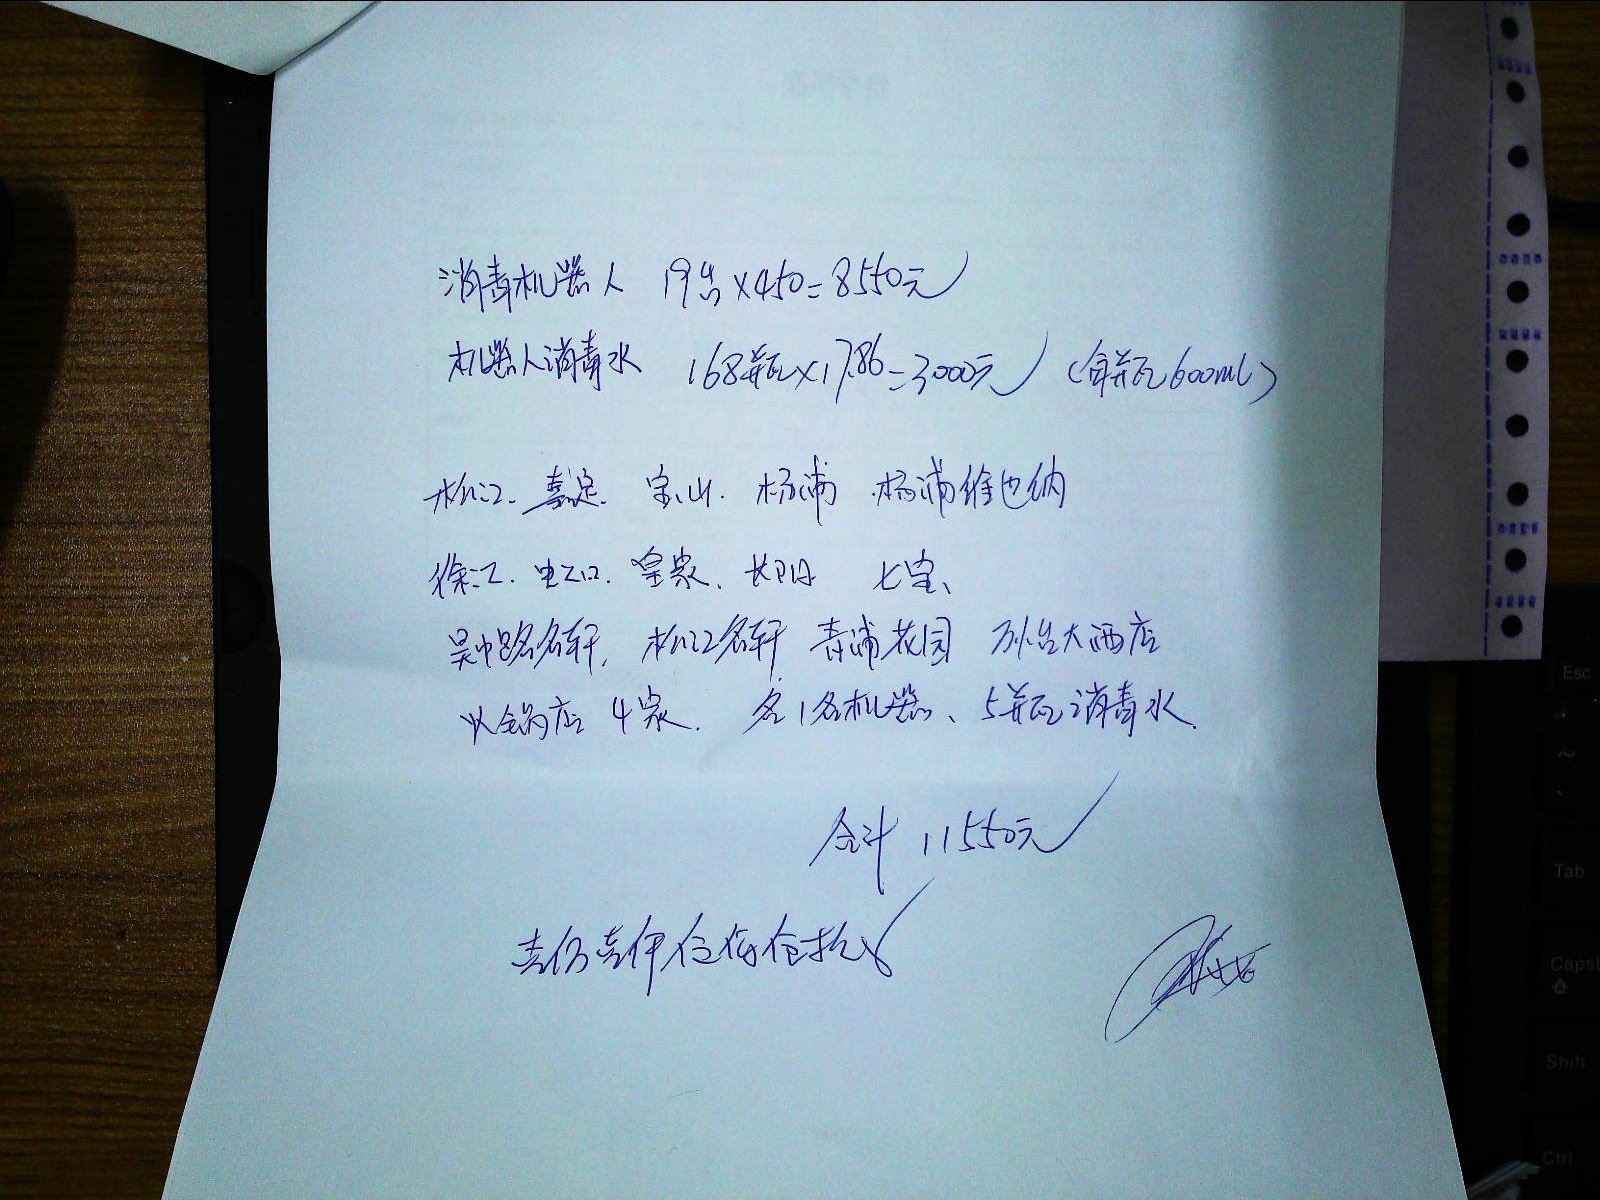 消毒机器人 19台×450=8550元
机器人消毒水 168瓶×17.86=3000元 (每瓶600ml)
松江. 嘉定. 宝山. 杨浦 杨浦维也纳
徐汇. 虹口. 皇家. 七宝、
吴中路名轩, 松江名轩 青浦花园 大酒店
火锅店 4家. 各1台机器、5瓶消毒水.
合计 11550元